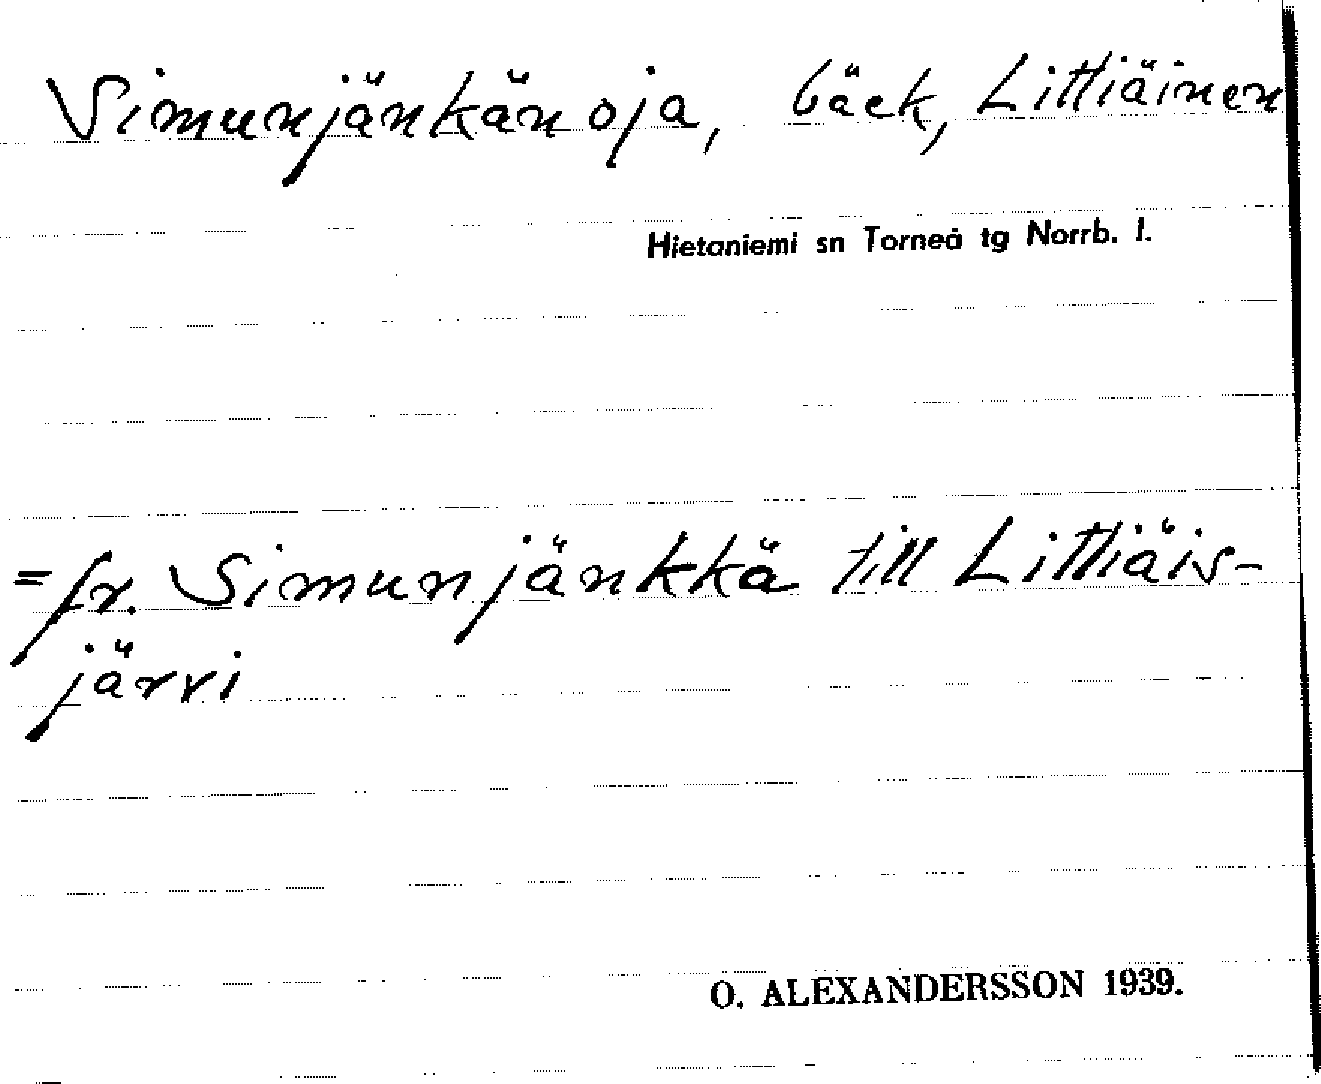 Simunjänkänoja, bäck, Littiäinen
Hietaniemi sn Torneå tg Norrb. l.
= fr. Simunjänkkä till Littiäis-
järvi
O. ALEXANDERSSON 1939.